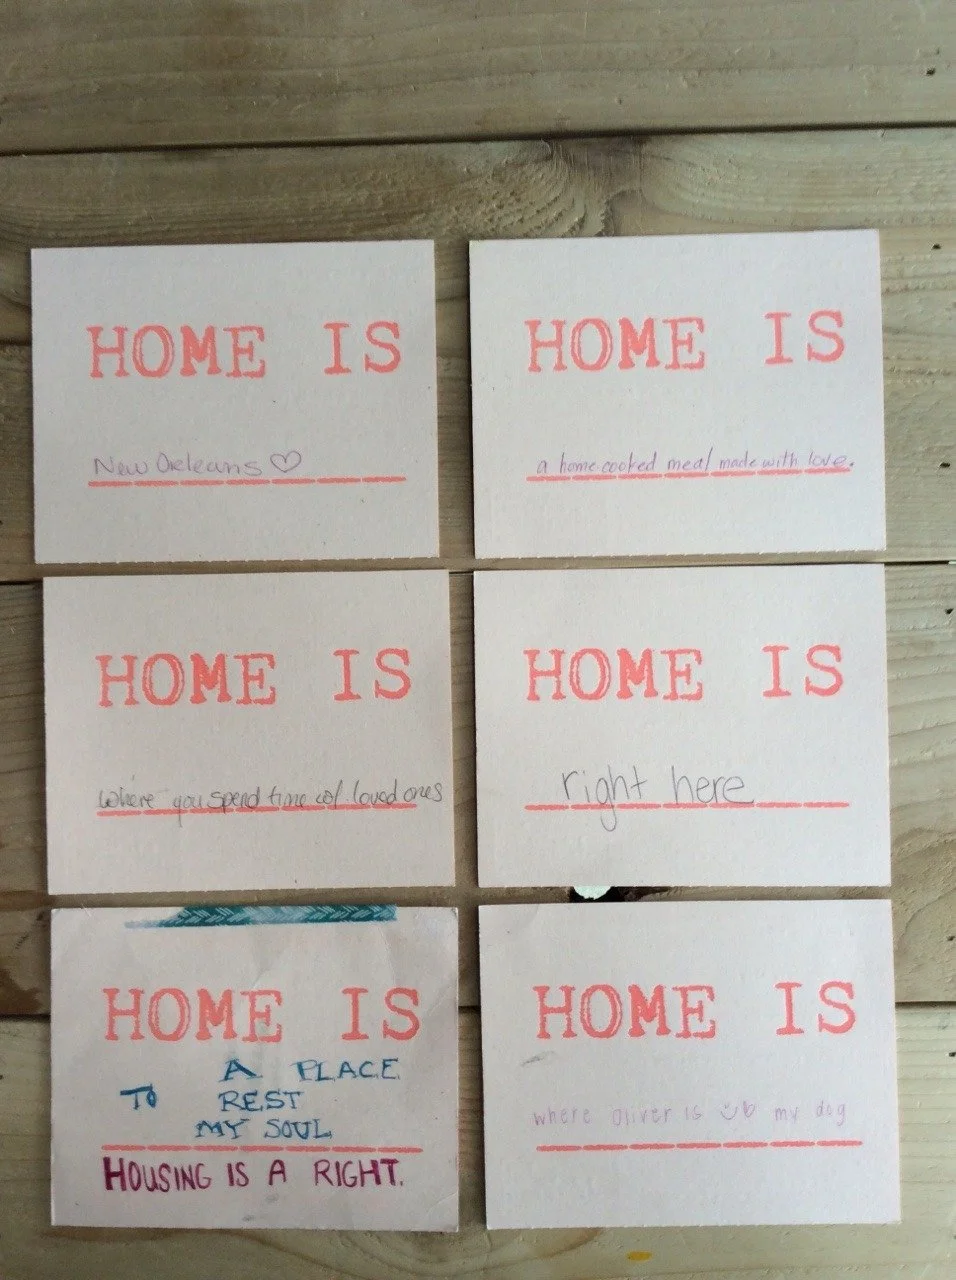 HOME IS
New Orleans ♡
HOME IS
a home cooked meal made with love.
HOME IS
where you spend time w/ loved ones
HOME IS
right here
HOME IS
A PLACE
TO REST
MY SOUL
HOUSING IS A RIGHT.
HOME IS
where Oliver is my dog